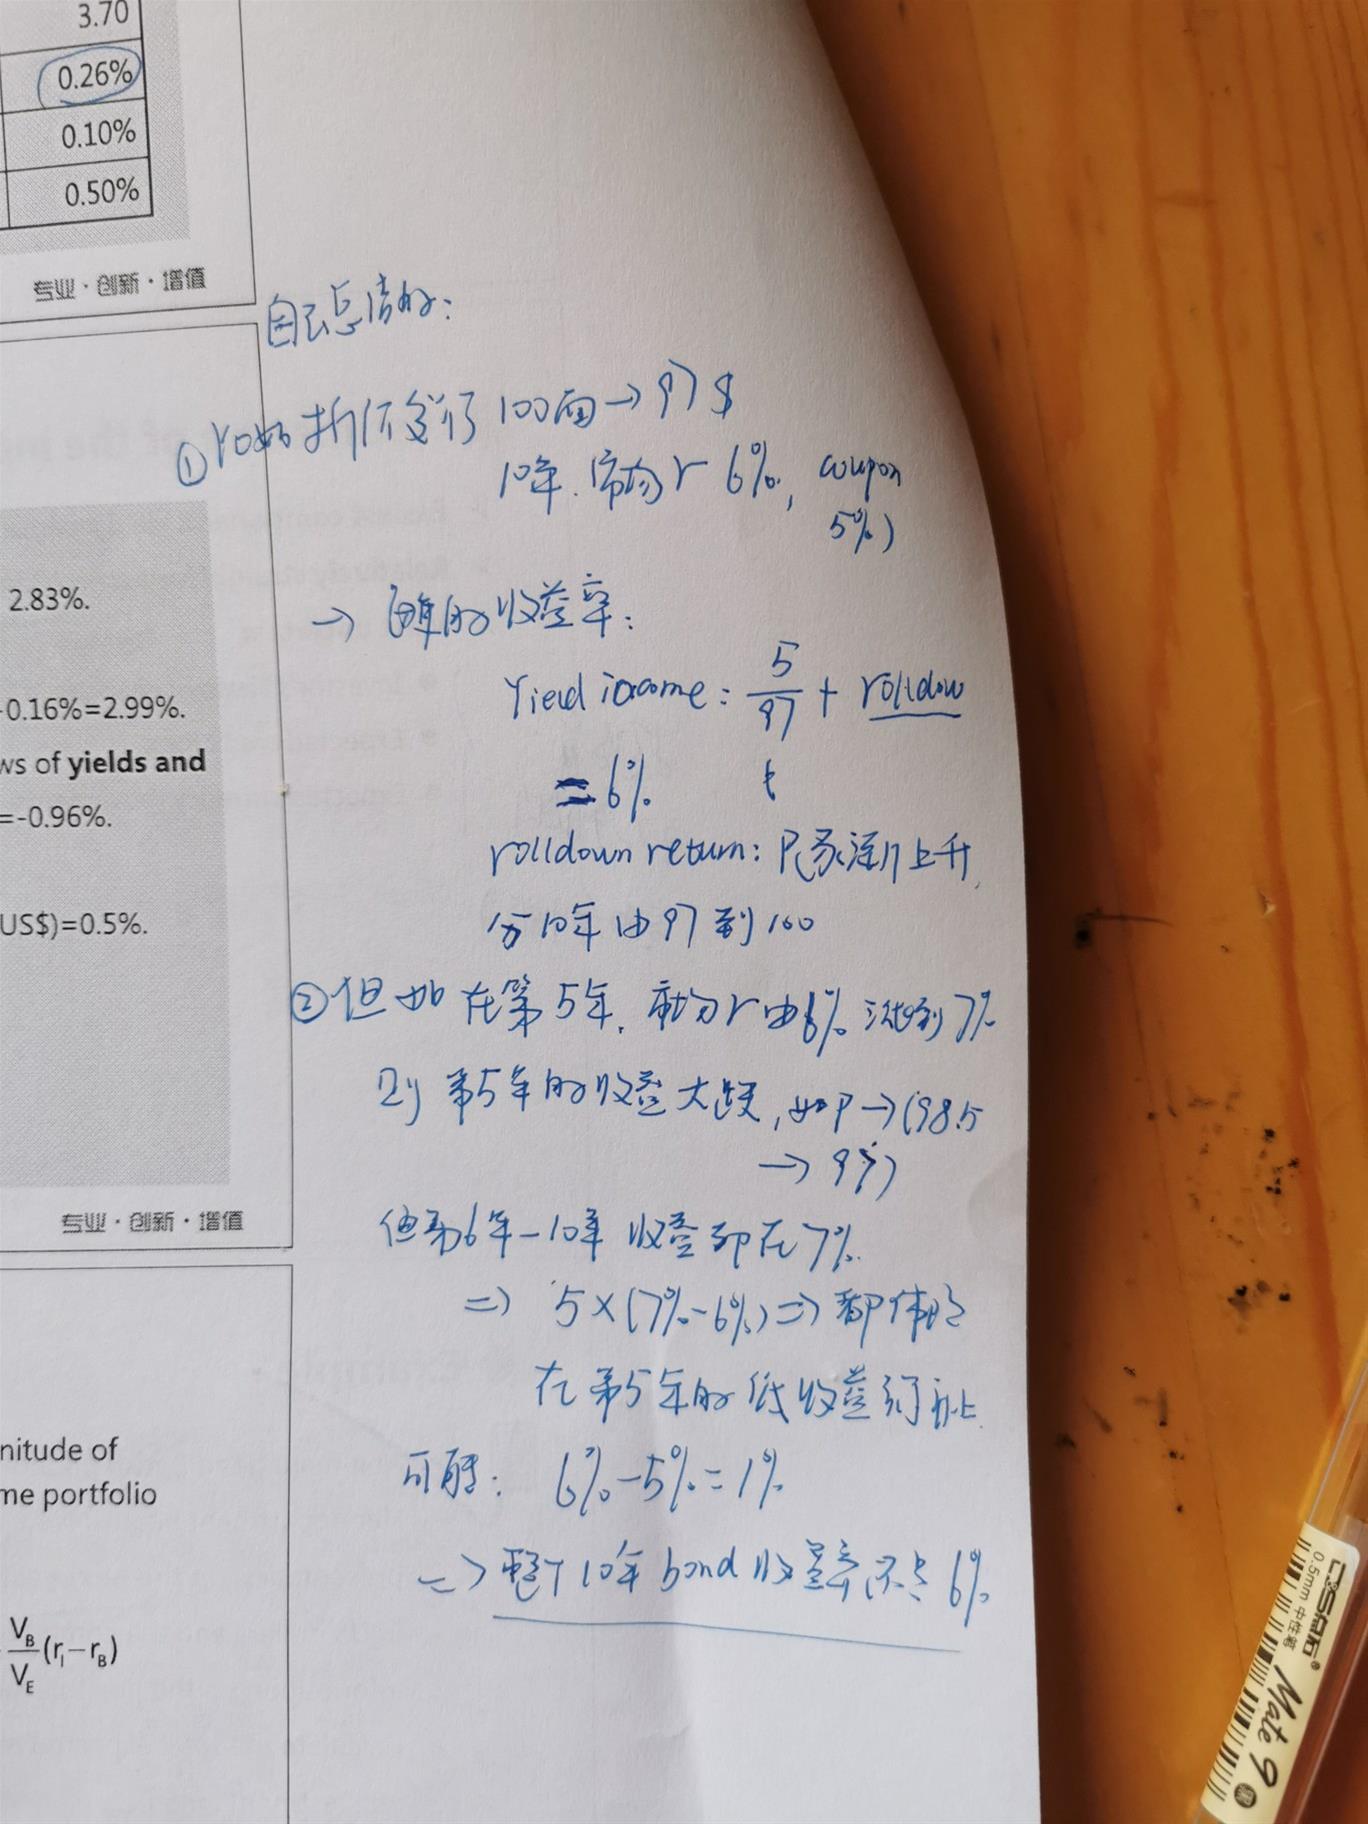 3.70
0.26%
0.10%
0.50%
专业·创新·增值
自己总结的:
① 折价发行 100面→97$
10年. 市场r 6%, coupon
5%)
→ 每年的收益率:
Yield income: 5/97 + rolldow
= 6%
rolldown return: P逐渐上升,
分10年由97到100
②但如在第5年, 市场r由6% 到7%
则第5年的收益大跌, 如P→(98.5
→97)
但第6年-10年收益却在7%.
=> 5×(7%-6%)=> 都体现
在第5年的低收益
6%-5%=1%
=> 整个10年bond收益率还是6%
2.83%.
-0.16%=2.99%.
ws of yields and
=-0.96%.
US$)=0.5%.
专业·创新·增值
nitude of
me portfolio
V_B/V_E (r_I − r_B)
0.5mm 中性笔
Mate 9